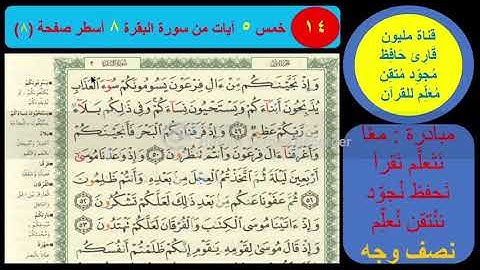 ١٤ خمس ٥ آيات من سورة البقرة ٨ أسطر صفحة (٨)
قناة مليون
قارئ حافظ
مُجوّد مُتقن
مُعلّم للقرآن
مبادرة : معًا
نتعلّم نَقرأ
نَحفظ نُجوّد
نتقن نُعلّم
نصف وجه
وَإِذْ نَجَّيْنَٰكُم مِّنْ ءَالِ فِرْعَوْنَ يَسُومُونَكُمْ سُوٓءَ ٱلْعَذَابِ
يُذَبِّحُونَ أَبْنَآءَكُمْ وَيَسْتَحْيُونَ نِسَآءَكُمْ وَفِى ذَٰلِكُم بَلَآءٌ
مِّن رَّبِّكُمْ عَظِيمٌ ٤٩ وَإِذْ فَرَقْنَا بِكُمُ ٱلْبَحْرَ فَأَنجَيْنَٰكُمْ
وَأَغْرَقْنَآ ءَالَ فِرْعَوْنَ وَأَنتُمْ تَنظُرُونَ ٥٠ وَإِذْ وَٰعَدْنَا مُوسَىٰٓ
أَرْبَعِينَ لَيْلَةً ثُمَّ ٱتَّخَذْتُمُ ٱلْعِجْلَ مِنۢ بَعْدِهِۦ وَأَنتُمْ ظَٰلِمُونَ
٥١ ثُمَّ عَفَوْنَا عَنكُم مِّنۢ بَعْدِ ذَٰلِكَ لَعَلَّكُمْ تَشْكُرُونَ ٥٢
وَإِذْ ءَاتَيْنَا مُوسَى ٱلْكِتَٰبَ وَٱلْفُرْقَانَ لَعَلَّكُمْ تَهْتَدُونَ ٥٣
وَإِذْ قَالَ مُوسَىٰ لِقَوْمِهِۦ يَٰقَوْمِ إِنَّكُمْ ظَلَمْتُمْ أَنفُسَكُم